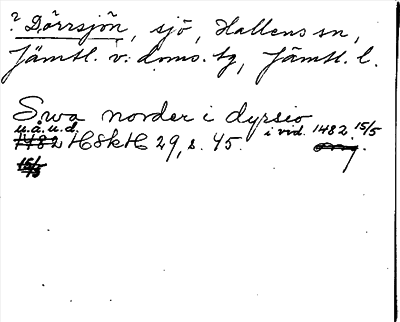 ? Dörrsjön, sjö, Hallens sn,
Jämtl. v. doms. tg, Jämtl. l.
S.wa norder i dyrsio
u.å.u.d. i vid. 1482 15/5
1482 HSkH 29, s. 45.
15/5